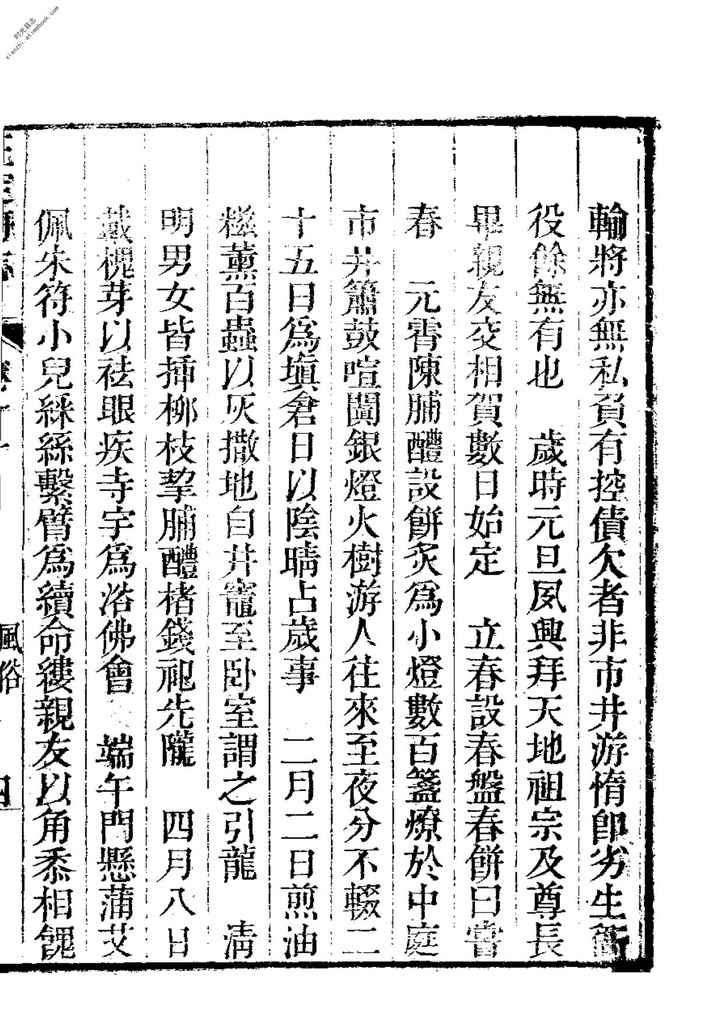 时光日志
輸將亦無私負有控債欠者非市井游惰卽劣生衙
役餘無有也　歲時元旦夙興拜天地祖宗及尊長
畢親友交相賀數日始定　立春設春盤春餅曰嘗
春　元霄陳脯醴設餅炙爲小燈數百盞燎於中庭
市井簫鼓喧闐銀燈火樹游人往來至夜分不輟二
十五日爲塡倉日以陰晴占歲事　二月二日煎油
糕薰百蟲以灰撒地自井竈至卧室謂之引龍　淸
明男女皆揷柳枝挈脯醴楮錢祀先隴　四月八日
戴槐芽以祛眼疾寺宇爲浴佛會　端午門懸蒲艾
佩朱符小兒綵絲繫臂爲續命縷親友以角黍相餽
風俗　四